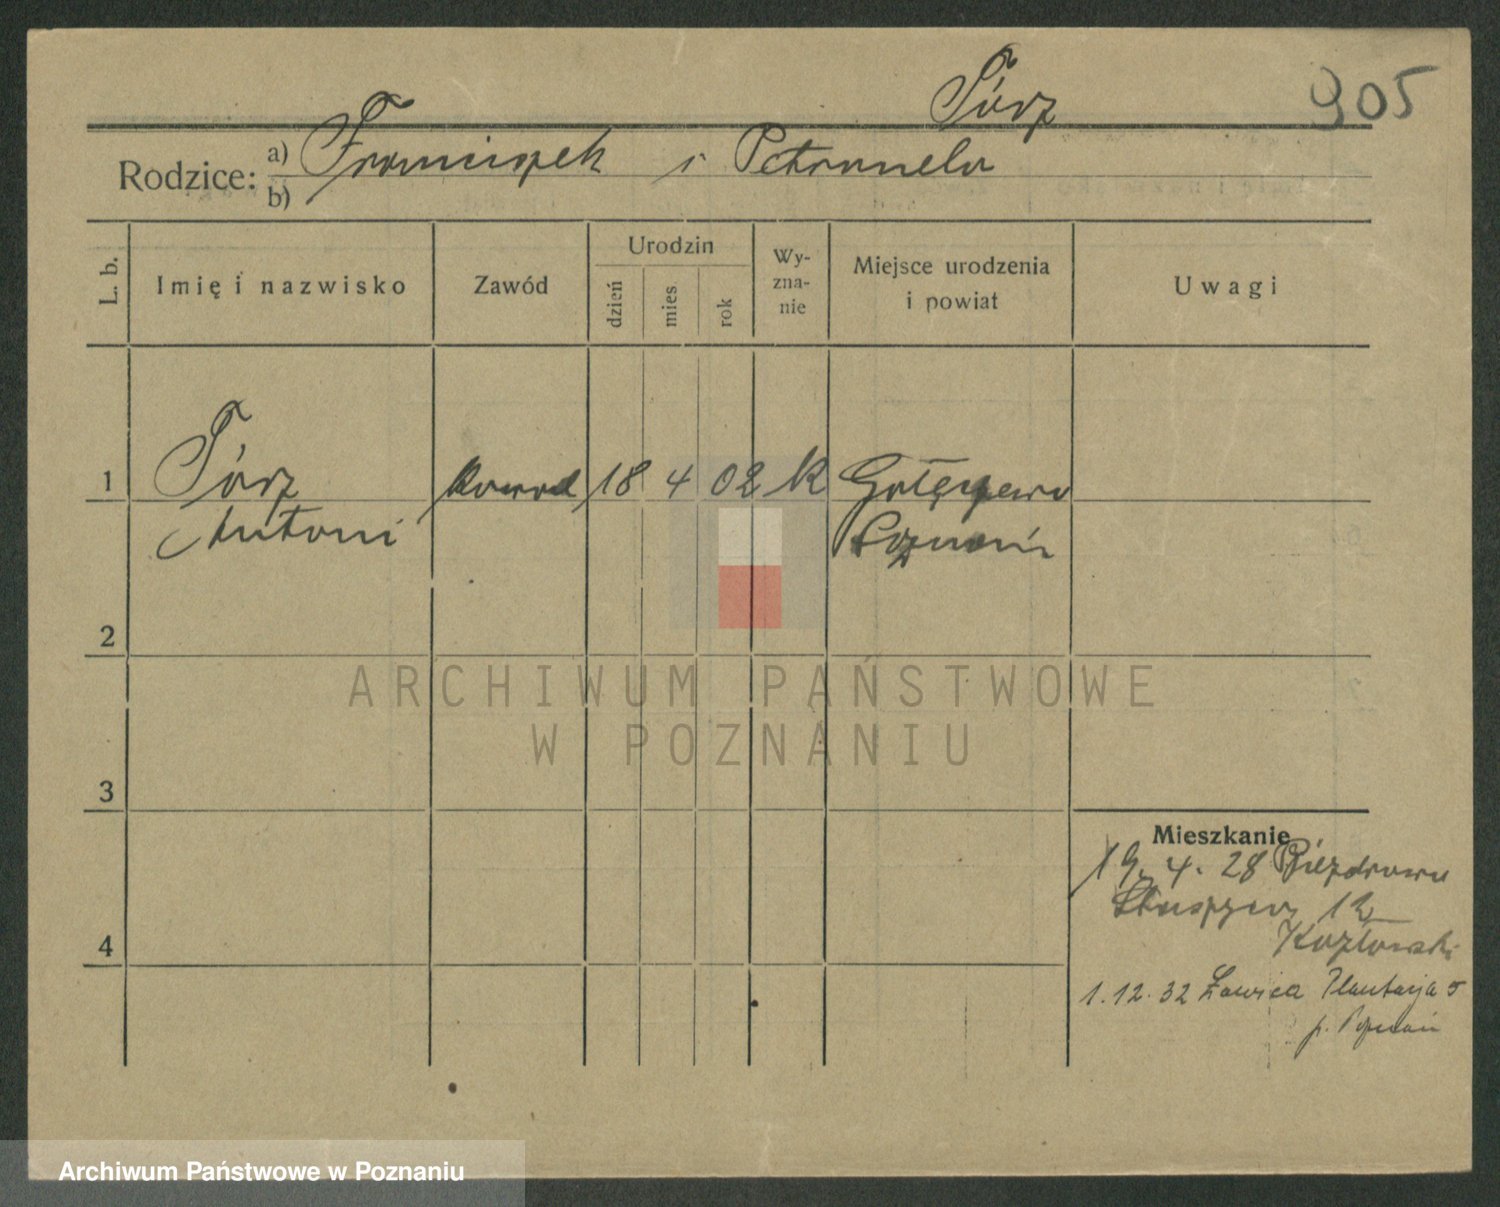 Tórz
905
Rodzice:
a) Franciszek i Petronela
b)
L. b.
Imię i nazwisko
Zawód
Urodzin
dzień
mies
rok
Wy-
zna-
nie
Miejsce urodzenia
i powiat
Uwagi
1
Tórz
18 4 02 k
Antoni
Poznań
2
ARCHIWUM PAŃSTWOWE
W POZNANIU
3
Mieszkanie
19. 4. 28
12
Kozłowski
4
1.12.32 Ławica Plantacja 5
p. Poznań
Archiwum Państwowe w Poznaniu